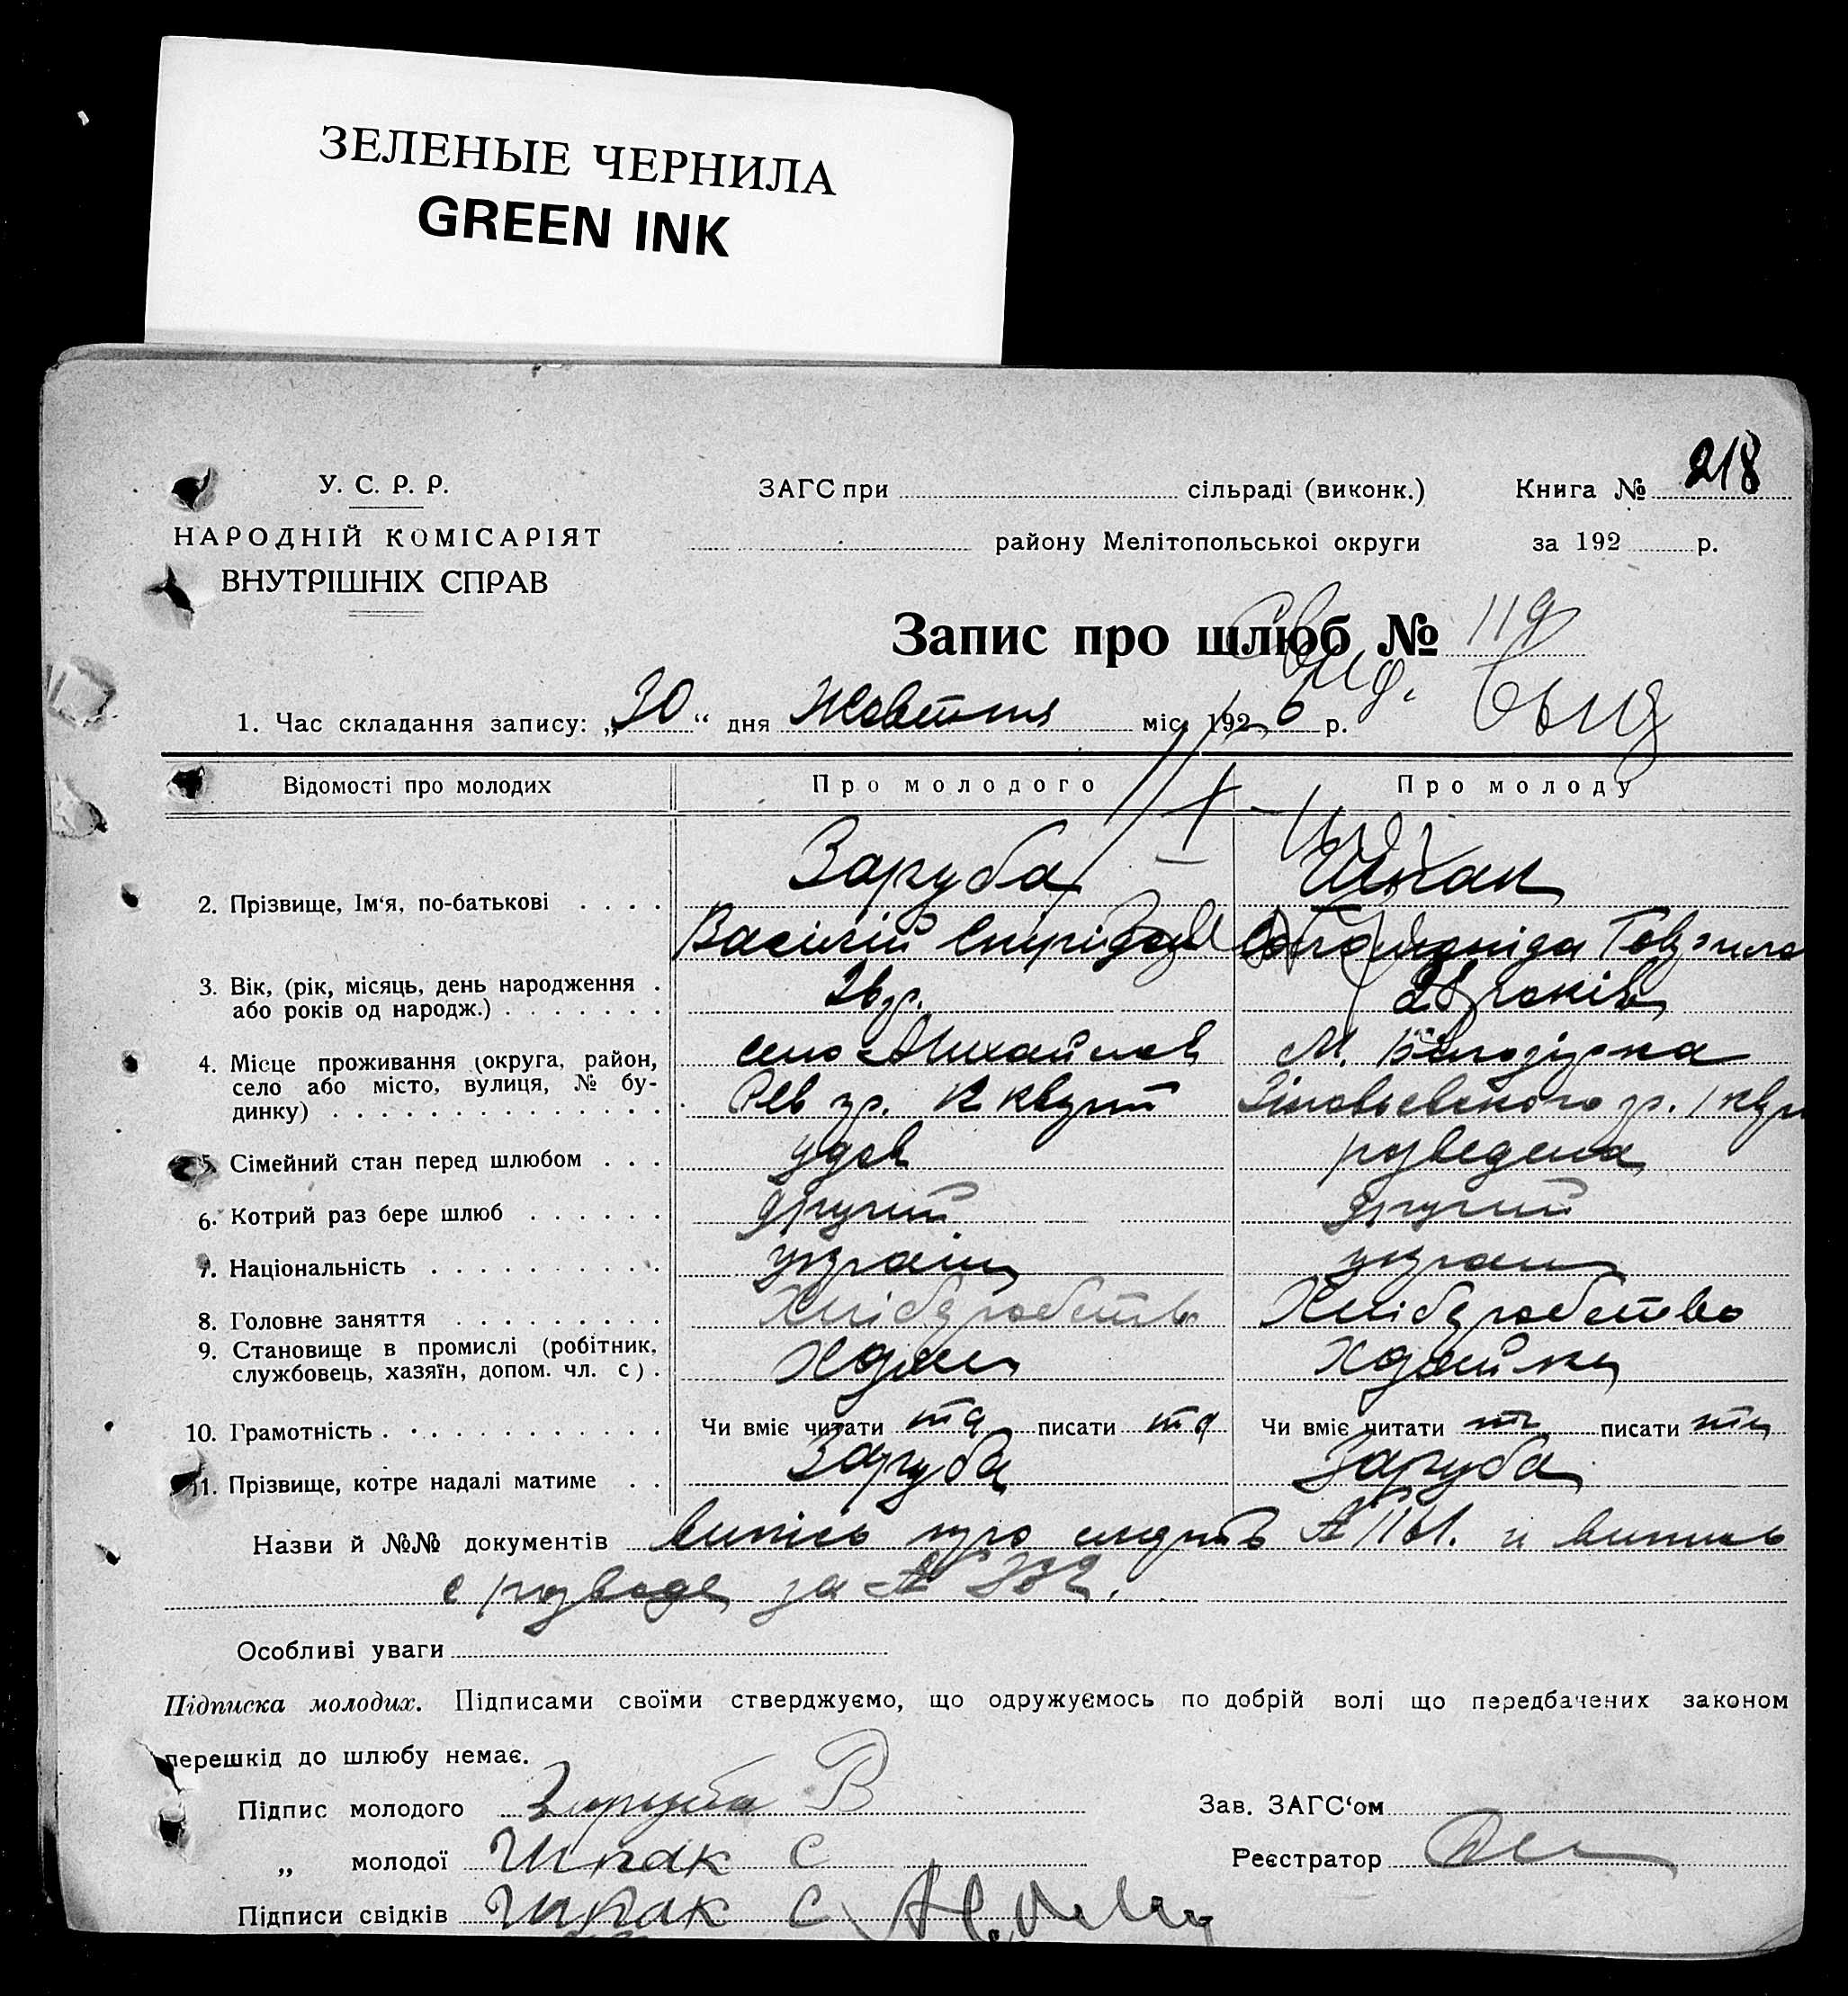 ЗЕЛЕНЫЕ ЧЕРНИЛА
GREEN INK
У. С. Р. Р.
НАРОДНІЙ КОМІСАРІЯТ
ВНУТРІШНІХ СПРАВ
ЗАГС при сільраді (виконк.)
району Мелітопольської округи
Книга № 218
за 192 р.
Запис про шлюб № 119
1. Час складання запису: „30“ дня Жовтня міс. 1926 р.
Відомості про молодих Про молодого Про молоду
2. Прізвище, Ім‘я, по-батькові Заруба Шпак
Василій
3. Вік, (рік, місяць, день народження
або років од народж.) 26 р. років
4. Місце проживання (округа, район,
село або місто, вулиця, № бу-
динку)
село Михайлов М. Білозірка
5. Сімейний стан перед шлюбом удов розведена
6. Котрий раз бере шлюб другий другий
7. Національність україн украин
8. Головне заняття Хліборобство Хліборобство
9. Становище в промислі (робітник,
службовець, хазяїн, допом. чл. с)
10. Грамотність Чи вміє читати так писати так Чи вміє читати писати
11. Прізвище, котре надалі матиме Заруба Заруба
Назви й №№ документів випись про смерть № 1161. и випись
о розводе за №
Особливі уваги
Підписка молодих. Підписами своїми стверджуємо, що одружуємось по добрій волі що передбачених законом
перешкід до шлюбу немає.
Підпис молодого Заруба В
„ молодої Шпак С
Підписи свідків Шпак С
Зав. ЗАГС‘ом
Реєстратор